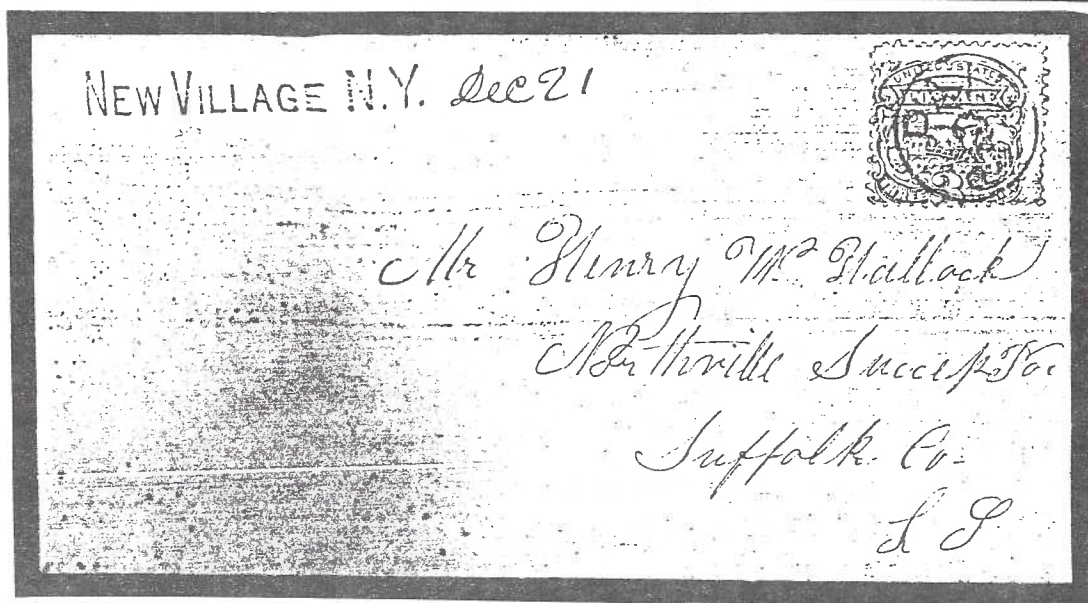 NEW VILLAGE N.Y. Dec 21
UNITED STATES
Mr Henry M Hallock
Northville
Suffolk Co-
L I